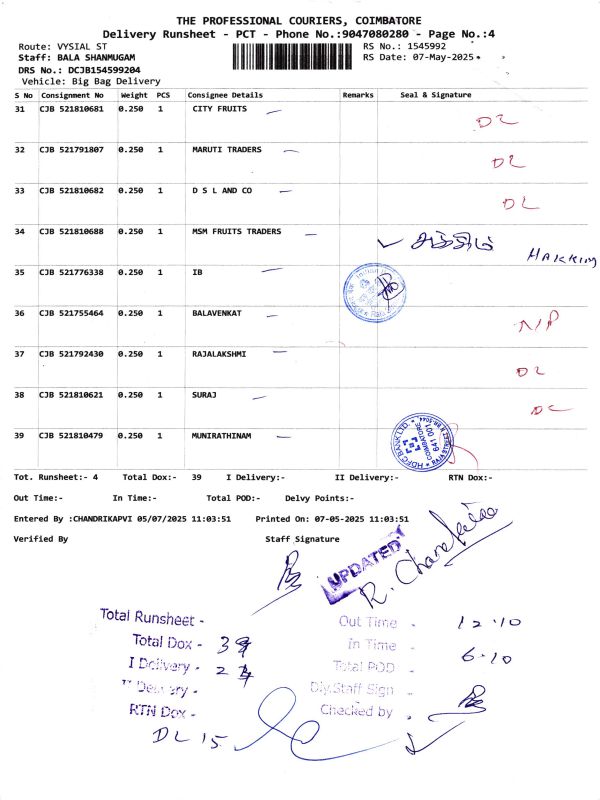 THE PROFESSIONAL COURIERS, COIMBATORE
Delivery Runsheet - PCT - Phone No.:9047080280 - Page No.:4
Route: VYSIAL ST RS No.: 1545992
Staff: BALA SHANMUGAM RS Date: 07-May-2025
DRS No.: DCJB154599204
Vehicle: Big Bag Delivery
S No Consignment No Weight PCS Consignee Details Remarks Seal & Signature
31 CJB 521810681 0.250 1 CITY FRUITS DL
32 CJB 521791807 0.250 1 MARUTI TRADERS DL
33 CJB 521810682 0.250 1 D S L AND CO DL
34 CJB 521810688 0.250 1 MSM FRUITS TRADERS
35 CJB 521776338 0.250 1 IB
36 CJB 521755464 0.250 1 BALAVENKAT N/P
37 CJB 521792430 0.250 1 RAJALAKSHMI DL
38 CJB 521810621 0.250 1 SURAJ DL
39 CJB 521810479 0.250 1 MUNIRATHINAM HDFC BANK LTD. COIMBATORE 641 001
Tot. Runsheet:- 4 Total Dox:- 39 I Delivery:- II Delivery:- RTN Dox:-
Out Time:- In Time:- Total POD:- Delvy Points:-
Entered By :CHANDRIKAPVI 05/07/2025 11:03:51 Printed On: 07-05-2025 11:03:51
Verified By Staff Signature
UPDATED
Total Runsheet - Out Time - 12.10
Total Dox - 39 In Time - 6.10
I Delivery - Total POD -
II Delivery - Dly.Staff Sign -
RTN Dox - Checked by -
DL 15